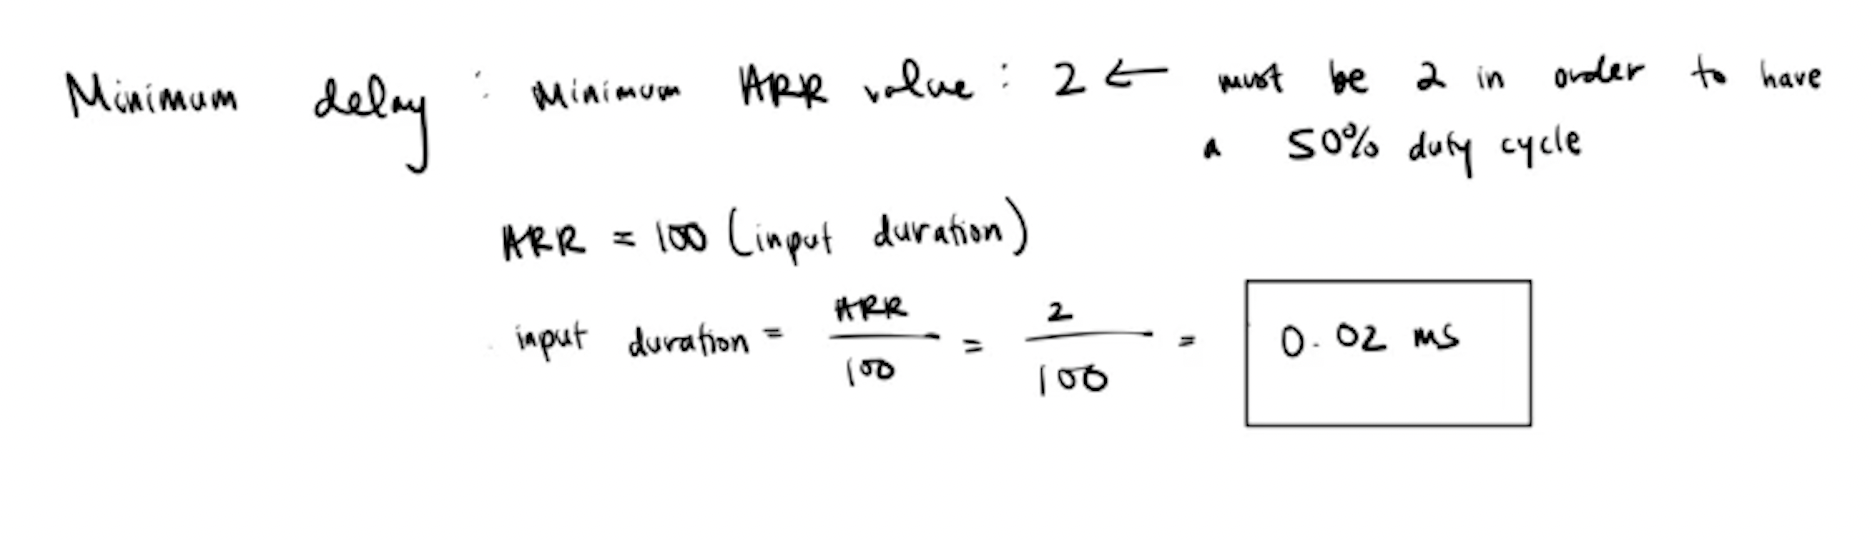 Minimum delay : Minimum ARR value : 2 ← must be 2 in order to have
a 50% duty cycle
ARR = 100 (input duration)
input duration = ARR/100 = 2/100 = 0.02 ms